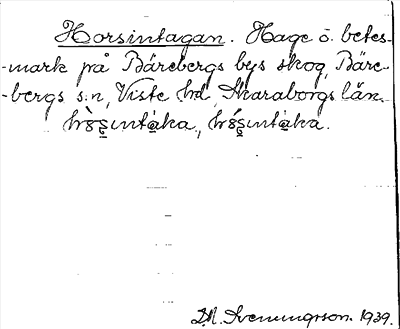 Horsintagan. Hage o. betes-
-mark på Bärebergs bys skog, Bäre-
-bergs s:n, Viste hd, Skaraborgs län.
D.M. Sveningsson. 1939.